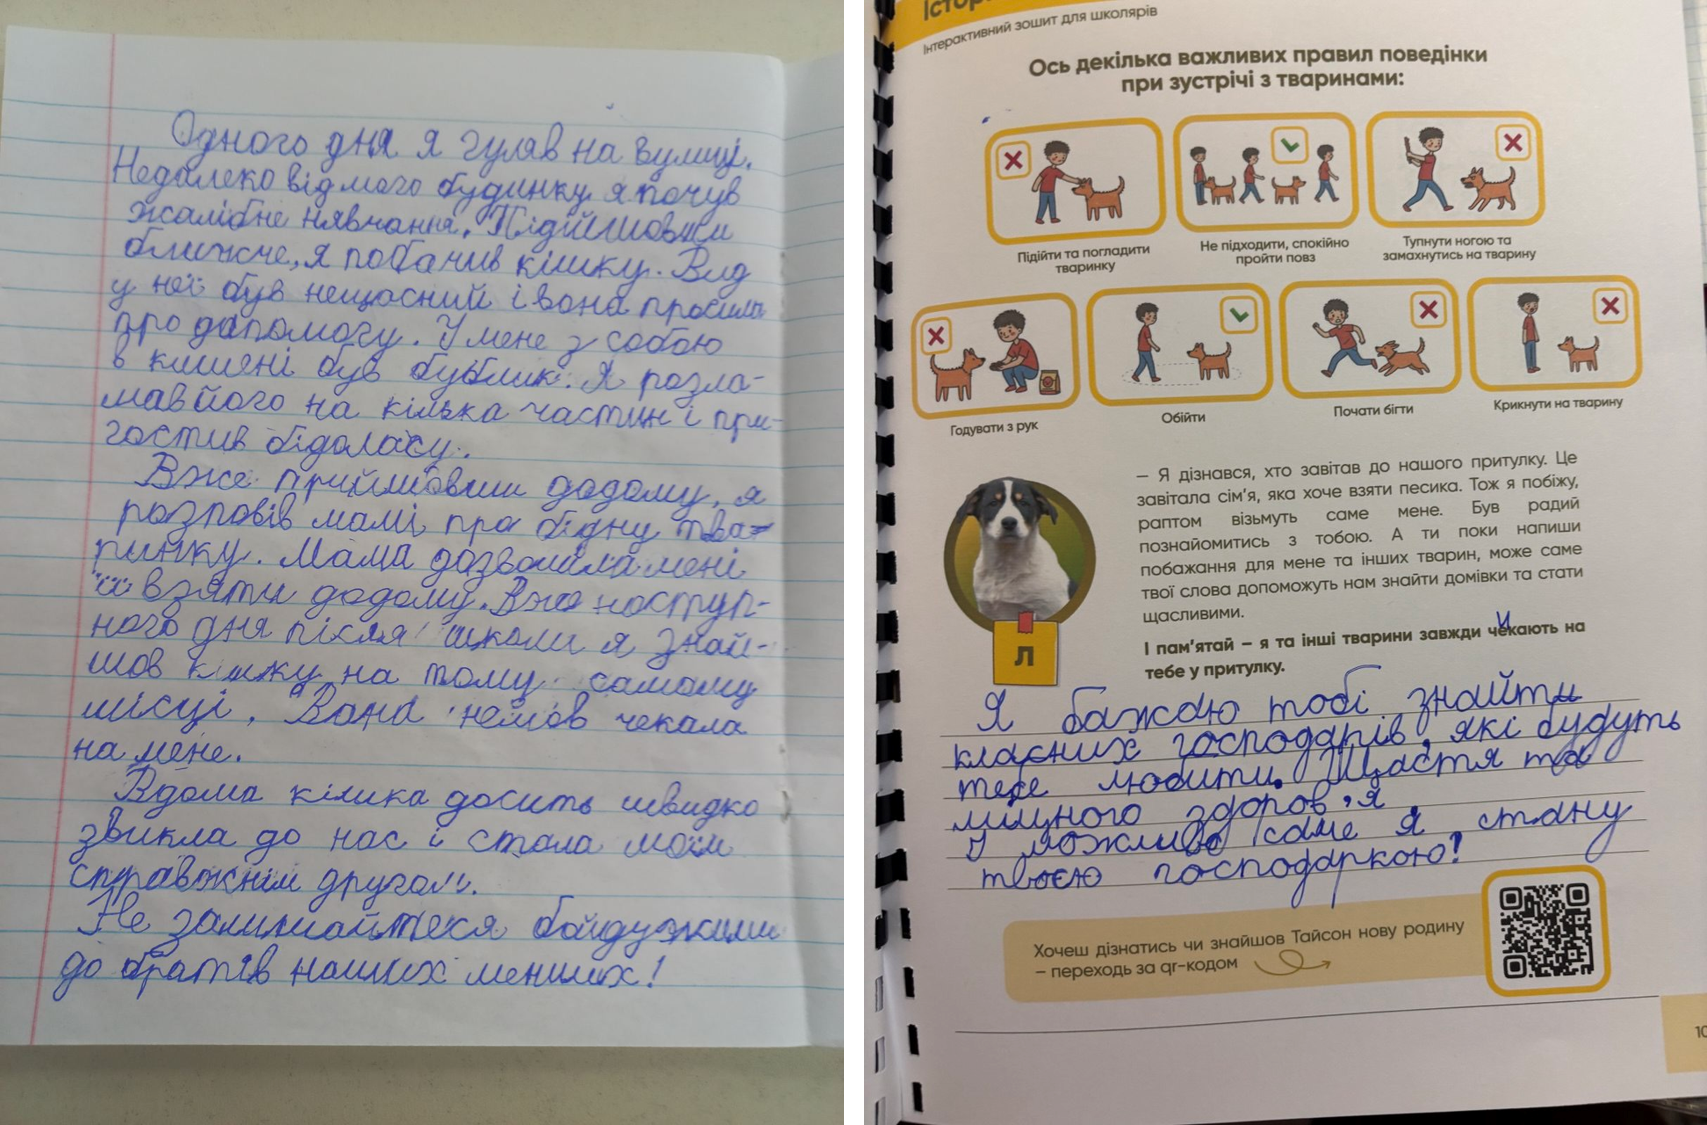 Одного дня я гуляв на вулиці.
Недалеко від мого будинку я почув
жалібне нявчання. Підійшовши
ближче, я побачив кішку. Вид
у неї був нещасний і вона просила
про допомогу. У мене з собою
в кишені був бублик. Я розла-
мав його на кілька частин і при-
гостив бідолаху.
Вже прийшовши додому, я
розповів мамі про бідну тва-
ринку. Мама дозволила мені
її взяти додому. Вже наступ-
ного дня після школи я знай-
шов кішку на тому самому
місці. Вона немов чекала
на мене.
Вдома кішка досить швидко
звикла до нас і стала моїм
справжнім другом.
Не залишайтеся байдужими
до братів наших менших!
Інтерактивний зошит для школярів
Ось декілька важливих правил поведінки
при зустрічі з тваринами:
Підійти та погладити
тваринку
Не підходити, спокійно
пройти повз
Тупнути ногою та
замахнутись на тварину
Годувати з рук
Обійти
Почати бігти
Крикнути на тварину
– Я дізнався, хто завітав до нашого притулку. Це
завітала сім’я, яка хоче взяти песика. Тож я побіжу,
раптом візьмуть саме мене. Був радий
познайомитись з тобою. А ти поки напиши
побажання для мене та інших тварин, може саме
твої слова допоможуть нам знайти домівки та стати
щасливими.
І пам’ятай – я та інші тварини завжди чекають на
тебе у притулку.
Л
Я бажаю тобі знайти
класних господарів, які будуть
тебе любити. Щастя та
міцного здоров'я.
І можливо саме я стану
твоєю господаркою!
Хочеш дізнатись чи знайшов Тайсон нову родину
– переходь за qr-кодом
10